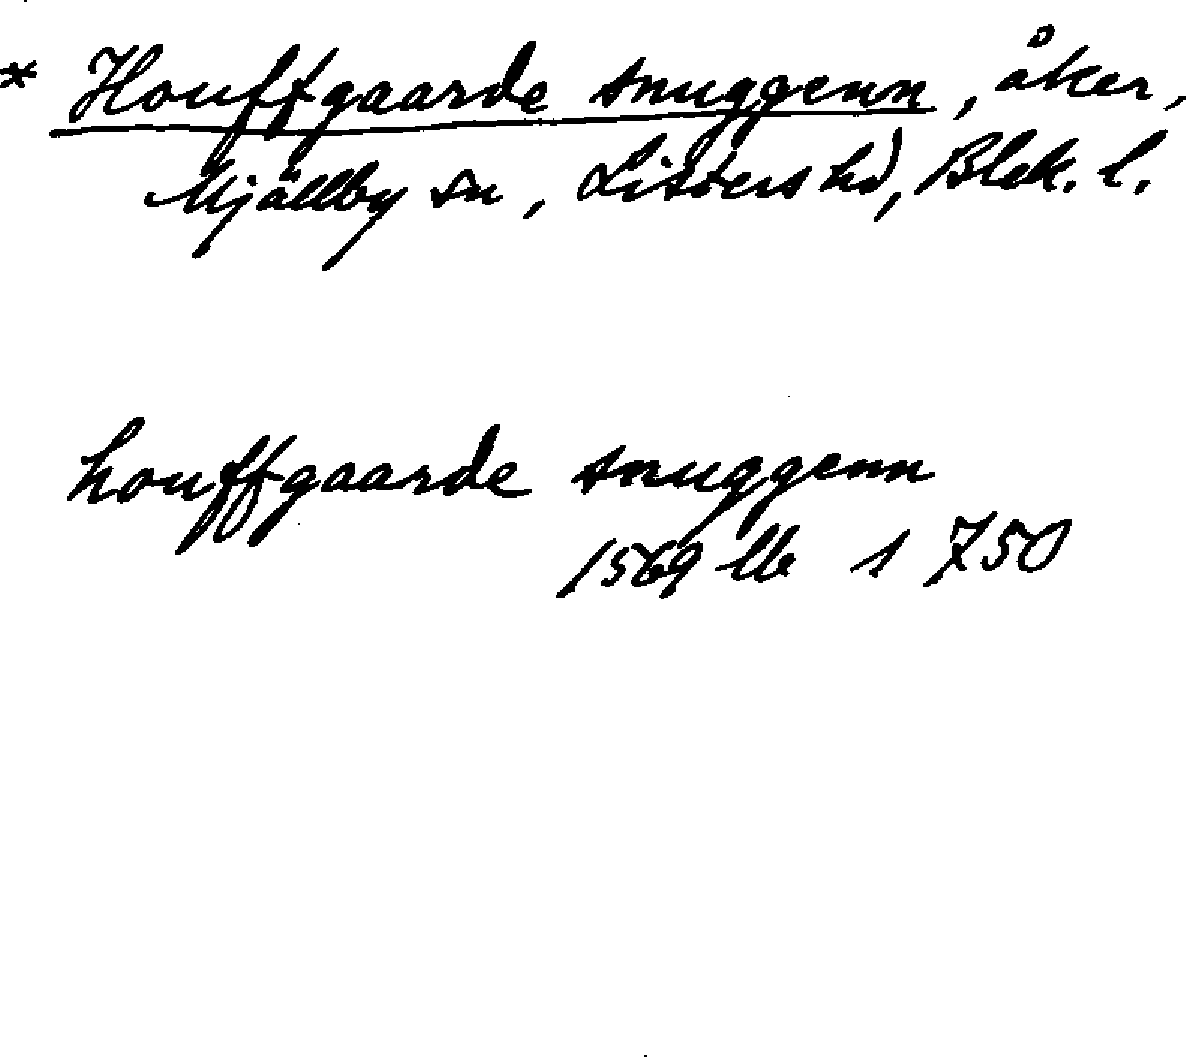 * Houffgaarde snuggenn, åker,
Mjällby sn, Listers hd, Blek. l.
houffgaarde snuggenn
1569 Mb s 750